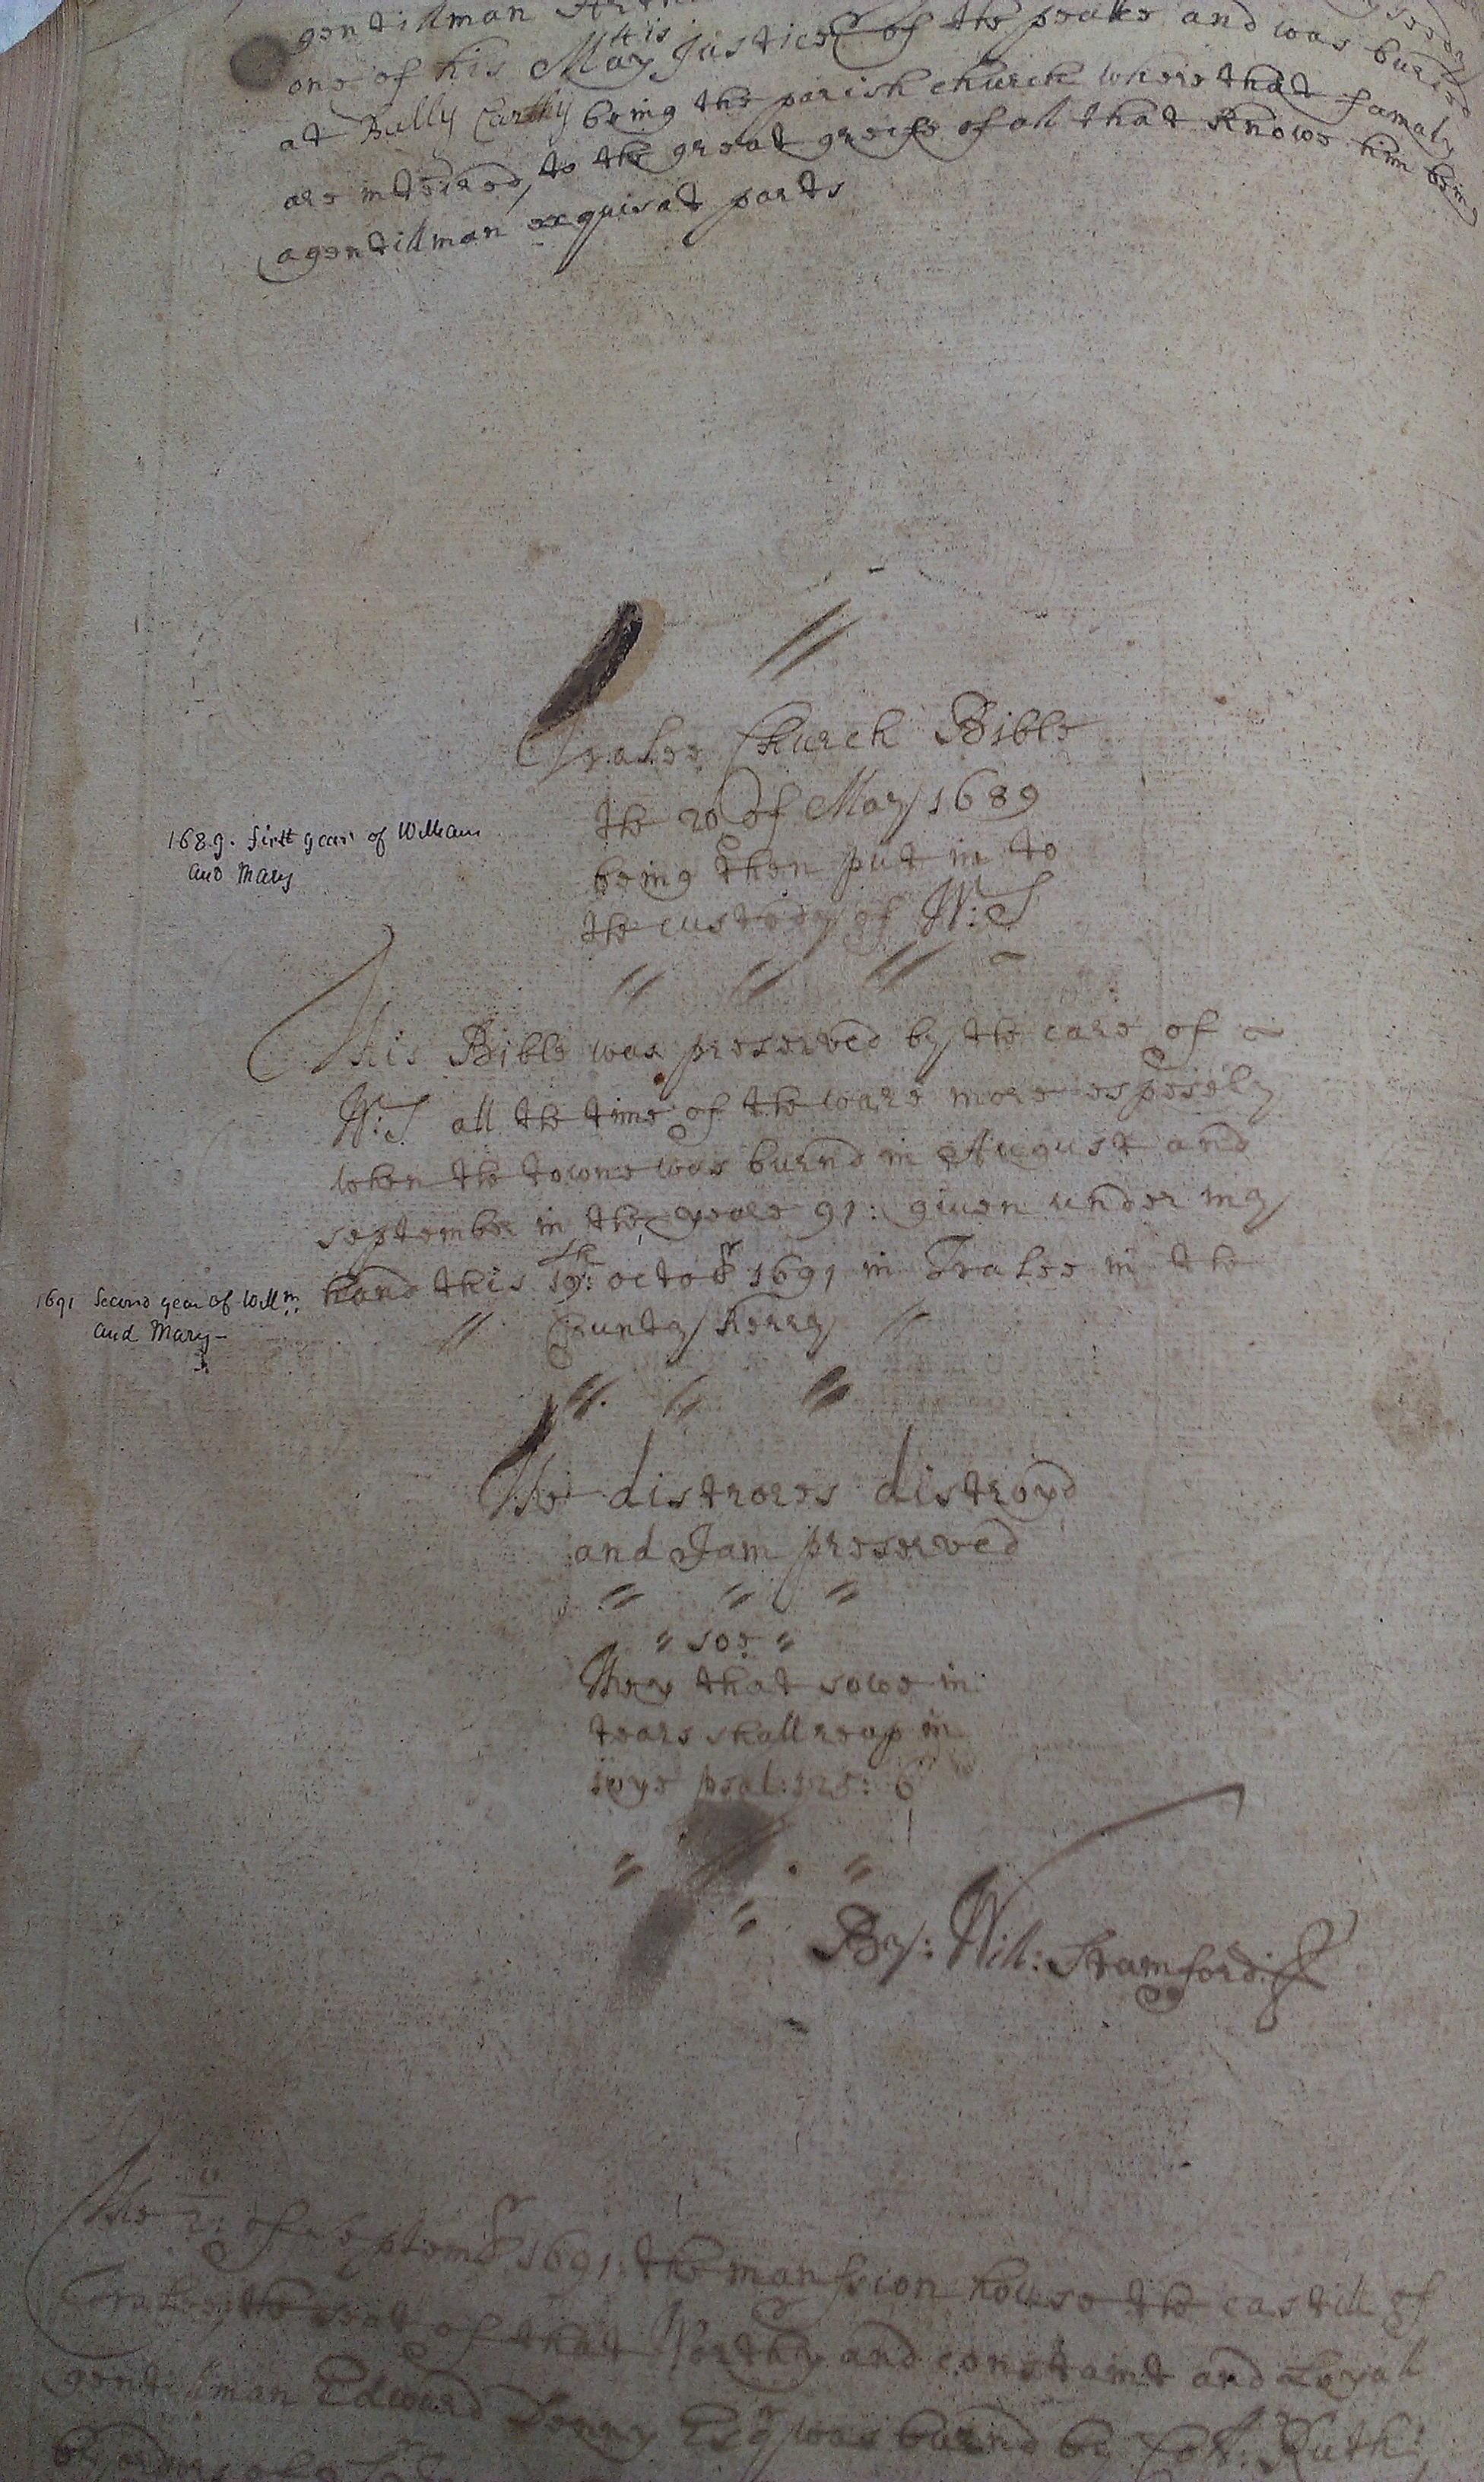 gentillman
one of his Maytis Justices of the peake and was buried
at Bally Carthy being the parish church where that famaly
are intered, to the great greife of all that knowe him being
a gentillman exquisat parts
Tralee Church Bible
the 20 of May 1689
being then put in to
the custody of W:S
1689. first year of William
and Mary
This Bible was preserved by the care of
W:S all the time of the ware more espesely
when the towne was burnd in August and
september in the yeare 91: given under my
hand this 19th: octobr 1691 in Tralee in the
County Kerry
1691 Second year of Willm
and Mary
The distrores distroyd
and I am preserved
soe
They that sowe in
tears shall reap in
ioye psal:125: 6
By: Will: Stamford:
The 2: of Septembr 1691: the mansion house the castill of
Tralee, the seat of that Worthy and constaint and Loyall
gentillman Edward Denny Esqr was burnd by Coll: Ruth:
by orders of